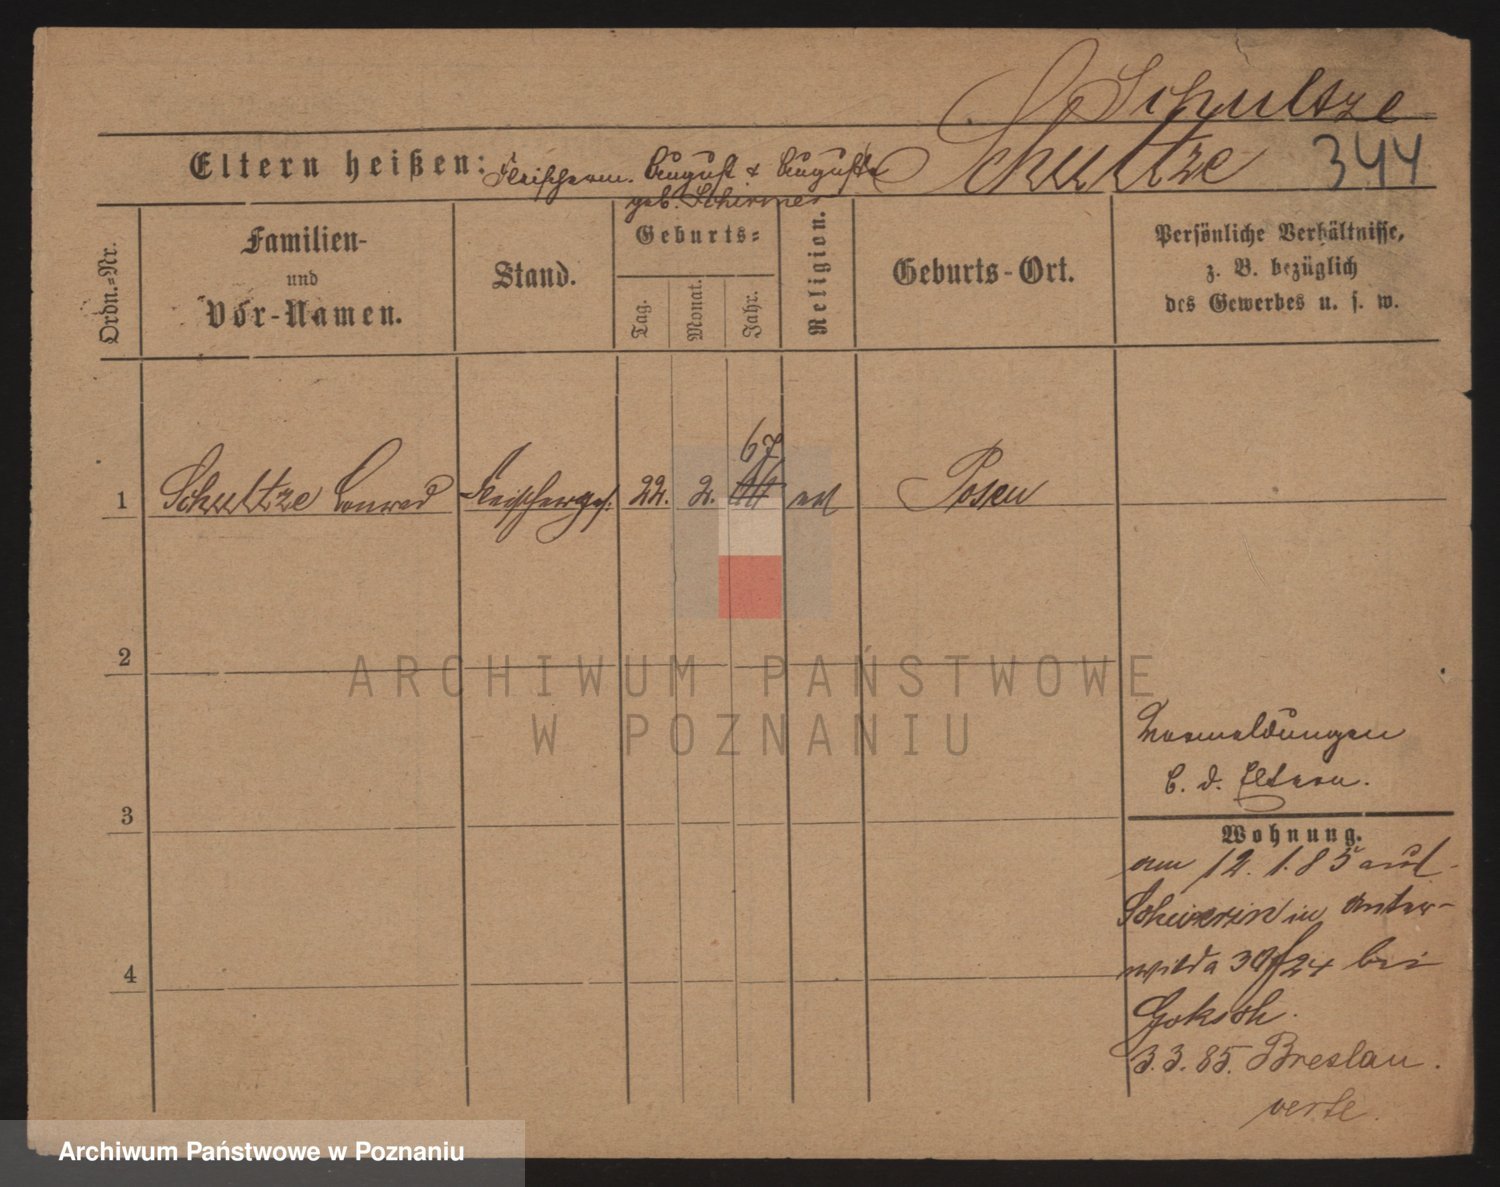 Schultze
Eltern heißen: Fleischerm. August & Auguste Schultze 344
geb. Schirmer
Ordn.-Nr.
Familien-
und
Vor-Namen.
Stand.
Geburts-
Tag.
Monat.
Jahr.
Religion.
Geburts-Ort.
Persönliche Verhältnisse,
z. B. bezüglich
des Gewerbes u. s. w.
67
1 Schultze Conrad Fleischerges. 22. 2. Posen
2
3
4
b. d. Eltern.
Wohnung.
am 12. 1. 85 aus
Schwerin in Unter-
wilda 30/24 bei
Goksch.
3. 3. 85. Breslau.
verte.
ARCHIWUM PAŃSTWOWE
W POZNANIU
Archiwum Państwowe w Poznaniu